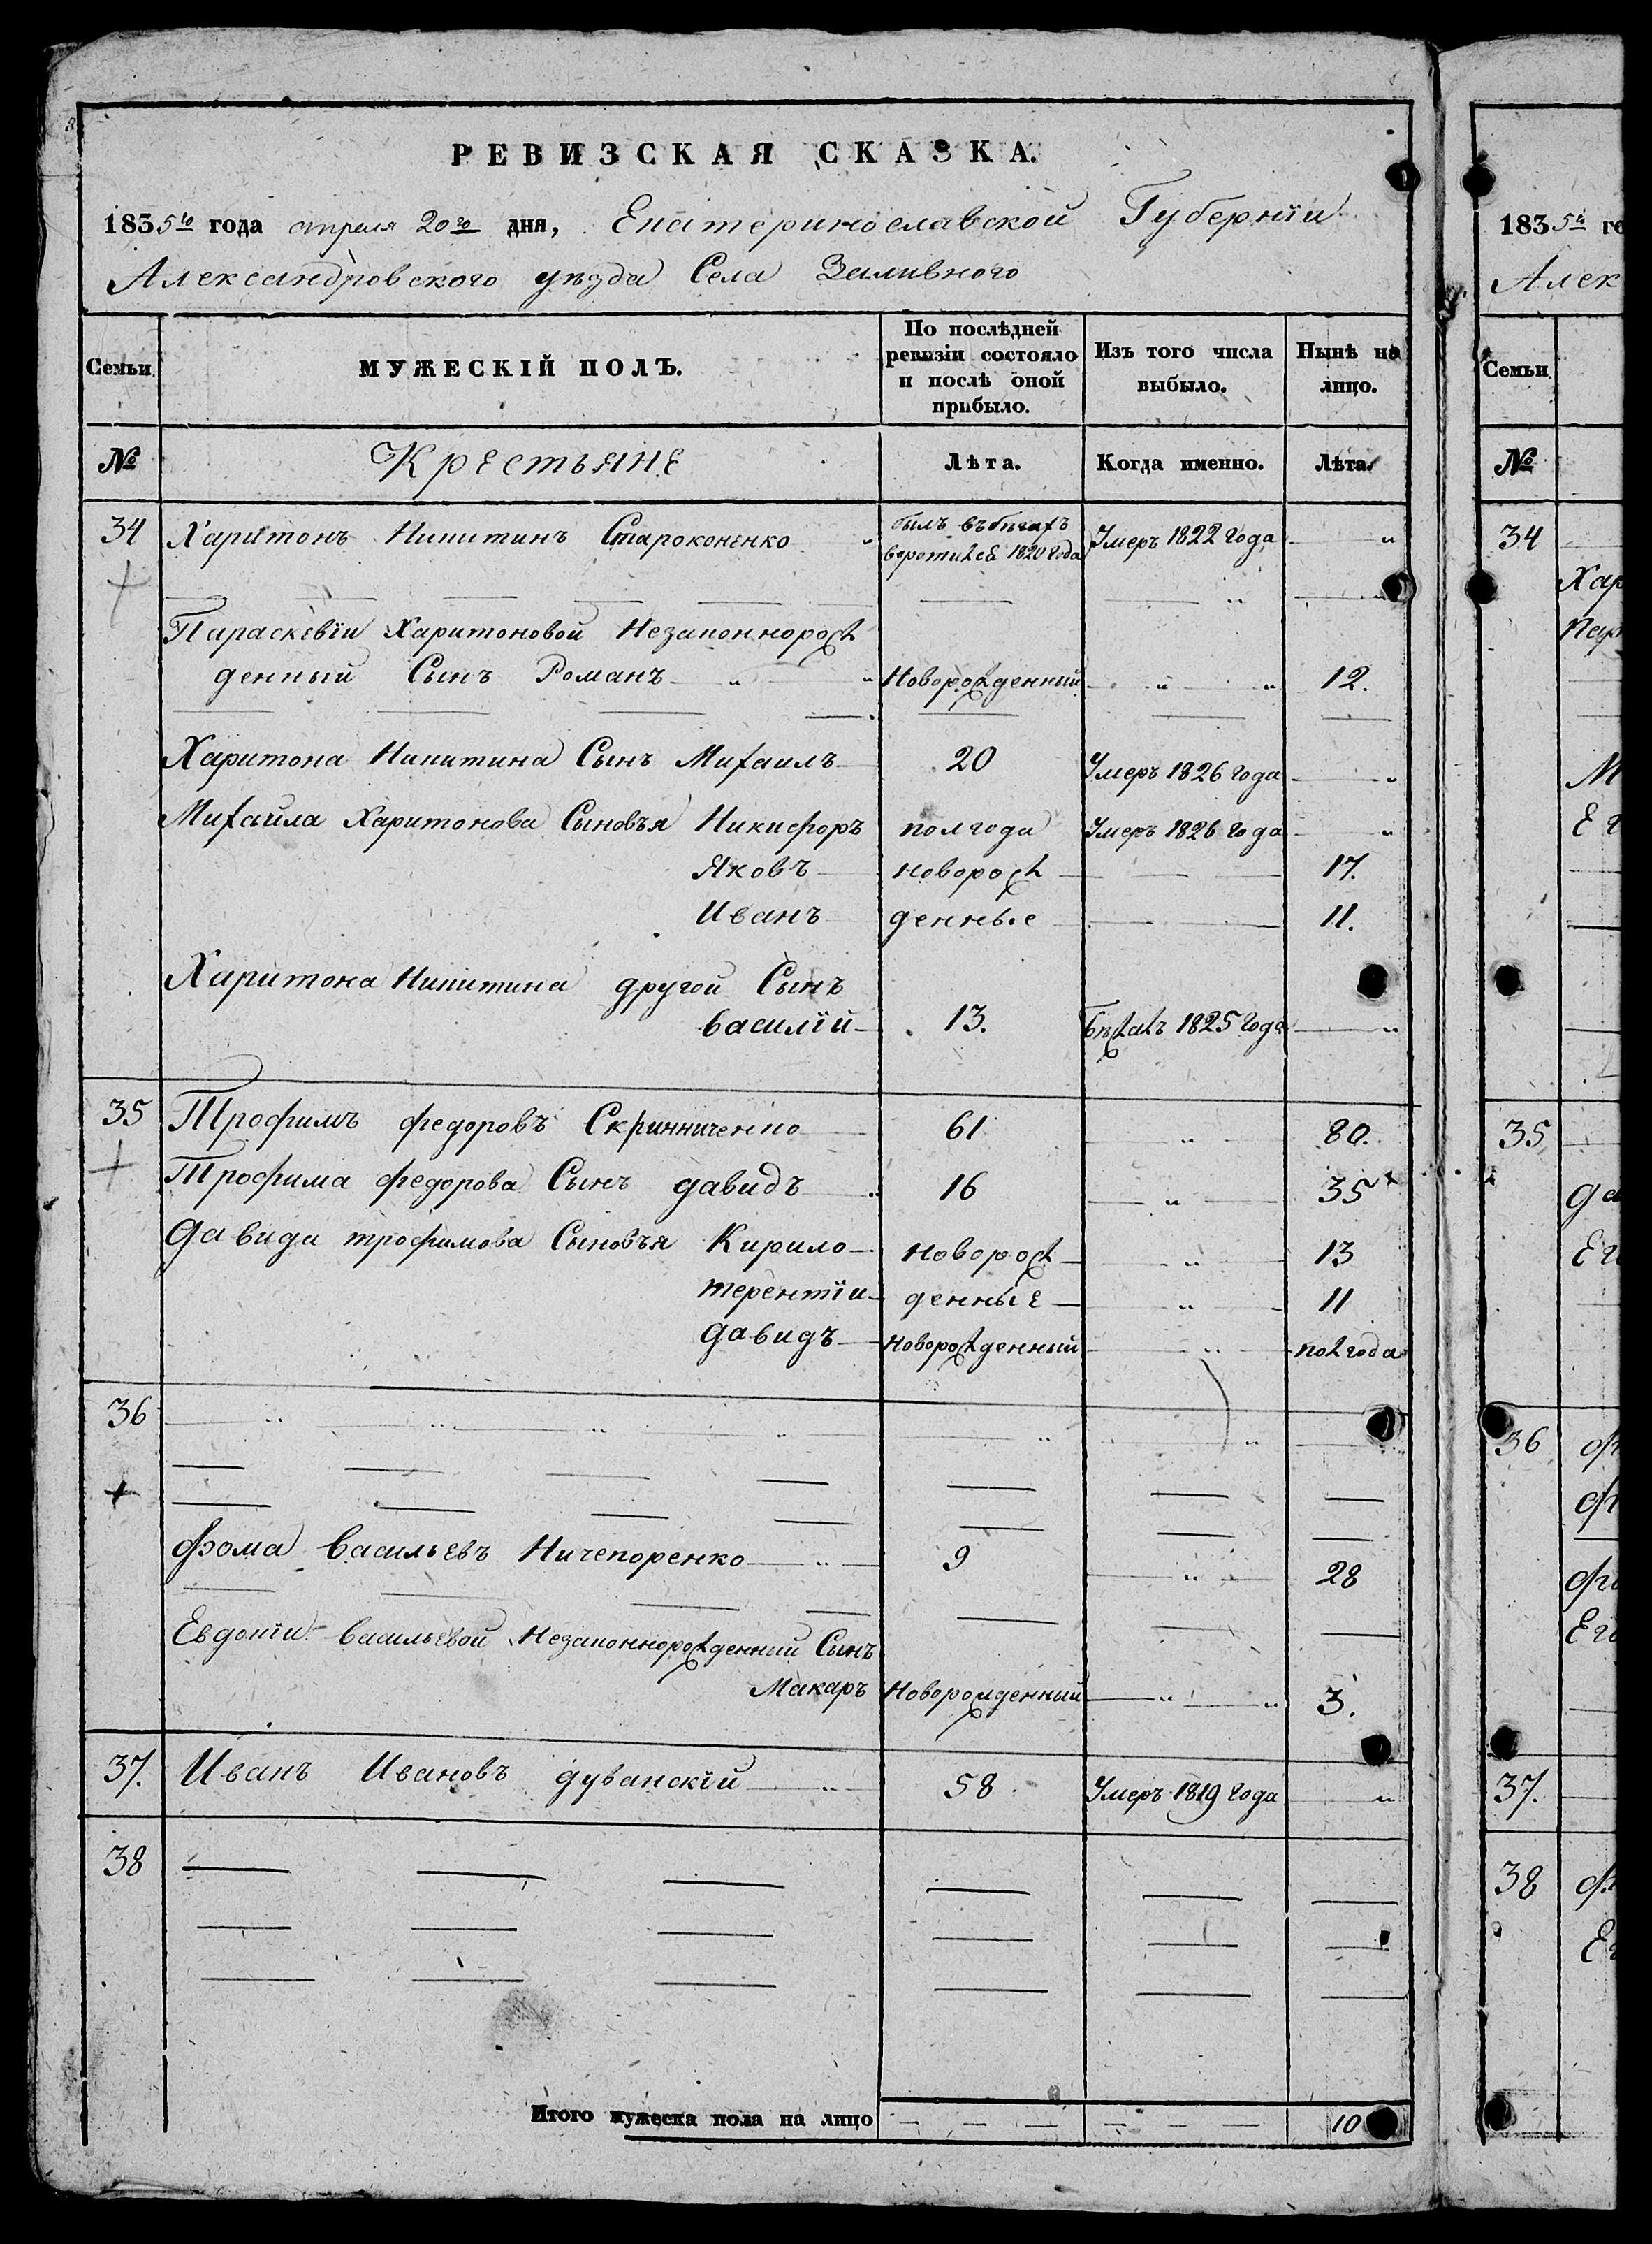 РЕВИЗСКАЯ СКАЗКА.
1835го года апреля 20го дня, Екатеринославской Губернїи
Александровского уѣзда Села Заливного
Семьи
МУЖЕСКІЙ ПОЛЪ.
По послѣдней ревизіи состояло и послѣ оной прибыло.
Изъ того числа выбыло.
Нынѣ на лицо.
№ Крестьяне Лѣта. Когда именно. Лѣта.
34 Харитонъ Никитинъ Староконенко былъ въ бѣгахъ воротился 1820 года Умеръ 1822 года
Параскевїи Харитоновой Незаконнорож
денный Сынъ Романъ Новорожденный 12.
Харитона Никитина Сынъ Михаилъ 20 Умеръ 1826 года
Михаила Харитонова Сыновья Никифоръ полгода Умеръ 1826 года
Яковъ новорож 17.
Иванъ денные 11.
Харитона Никитина другой Сынъ
василїй 13. Бѣжалъ 1825 года
35 Трофимъ федоровъ Скринниченко 61 80.
Трофима федорова Сынъ давидъ 16 35
Давида трофимова Сыновья Кирило новорож 13
терентїи денные 11
Давидъ Новорожденный полгода
36
фома васильевъ Ничепоренко 9 28
Евдокїи васильевой Незаконнорожденный Сынъ
Макаръ Новорожденный 3.
37. Иванъ Ивановъ дуванскїй 58 Умеръ 1819 года
38
Итого мужеска пола на лицо 10
1835го го
Алек
Семьи
№
34
Хар
Пар
М
Ег
35
Да
Ег
36 ф
ф
Ег
37.
38 ф
Ег